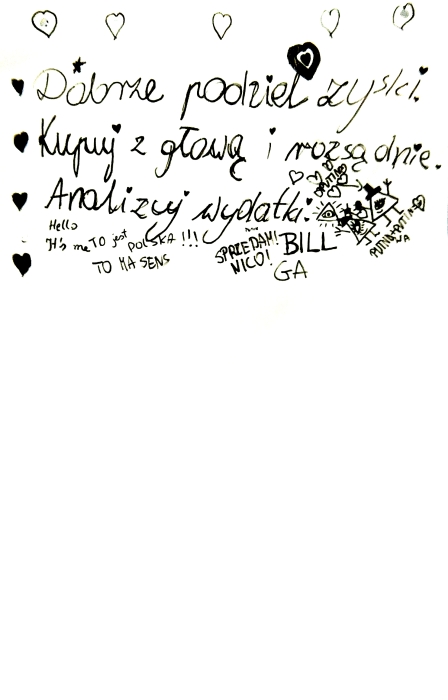 Dobrze podziel zyski.
Kupuj z głową i rozsądnie.
Analizuj wydatki.
Hello
It's me TO jest POLSKA !!!
TO MA SENS
SPRZEDAM!
NICO!
BILL
GA